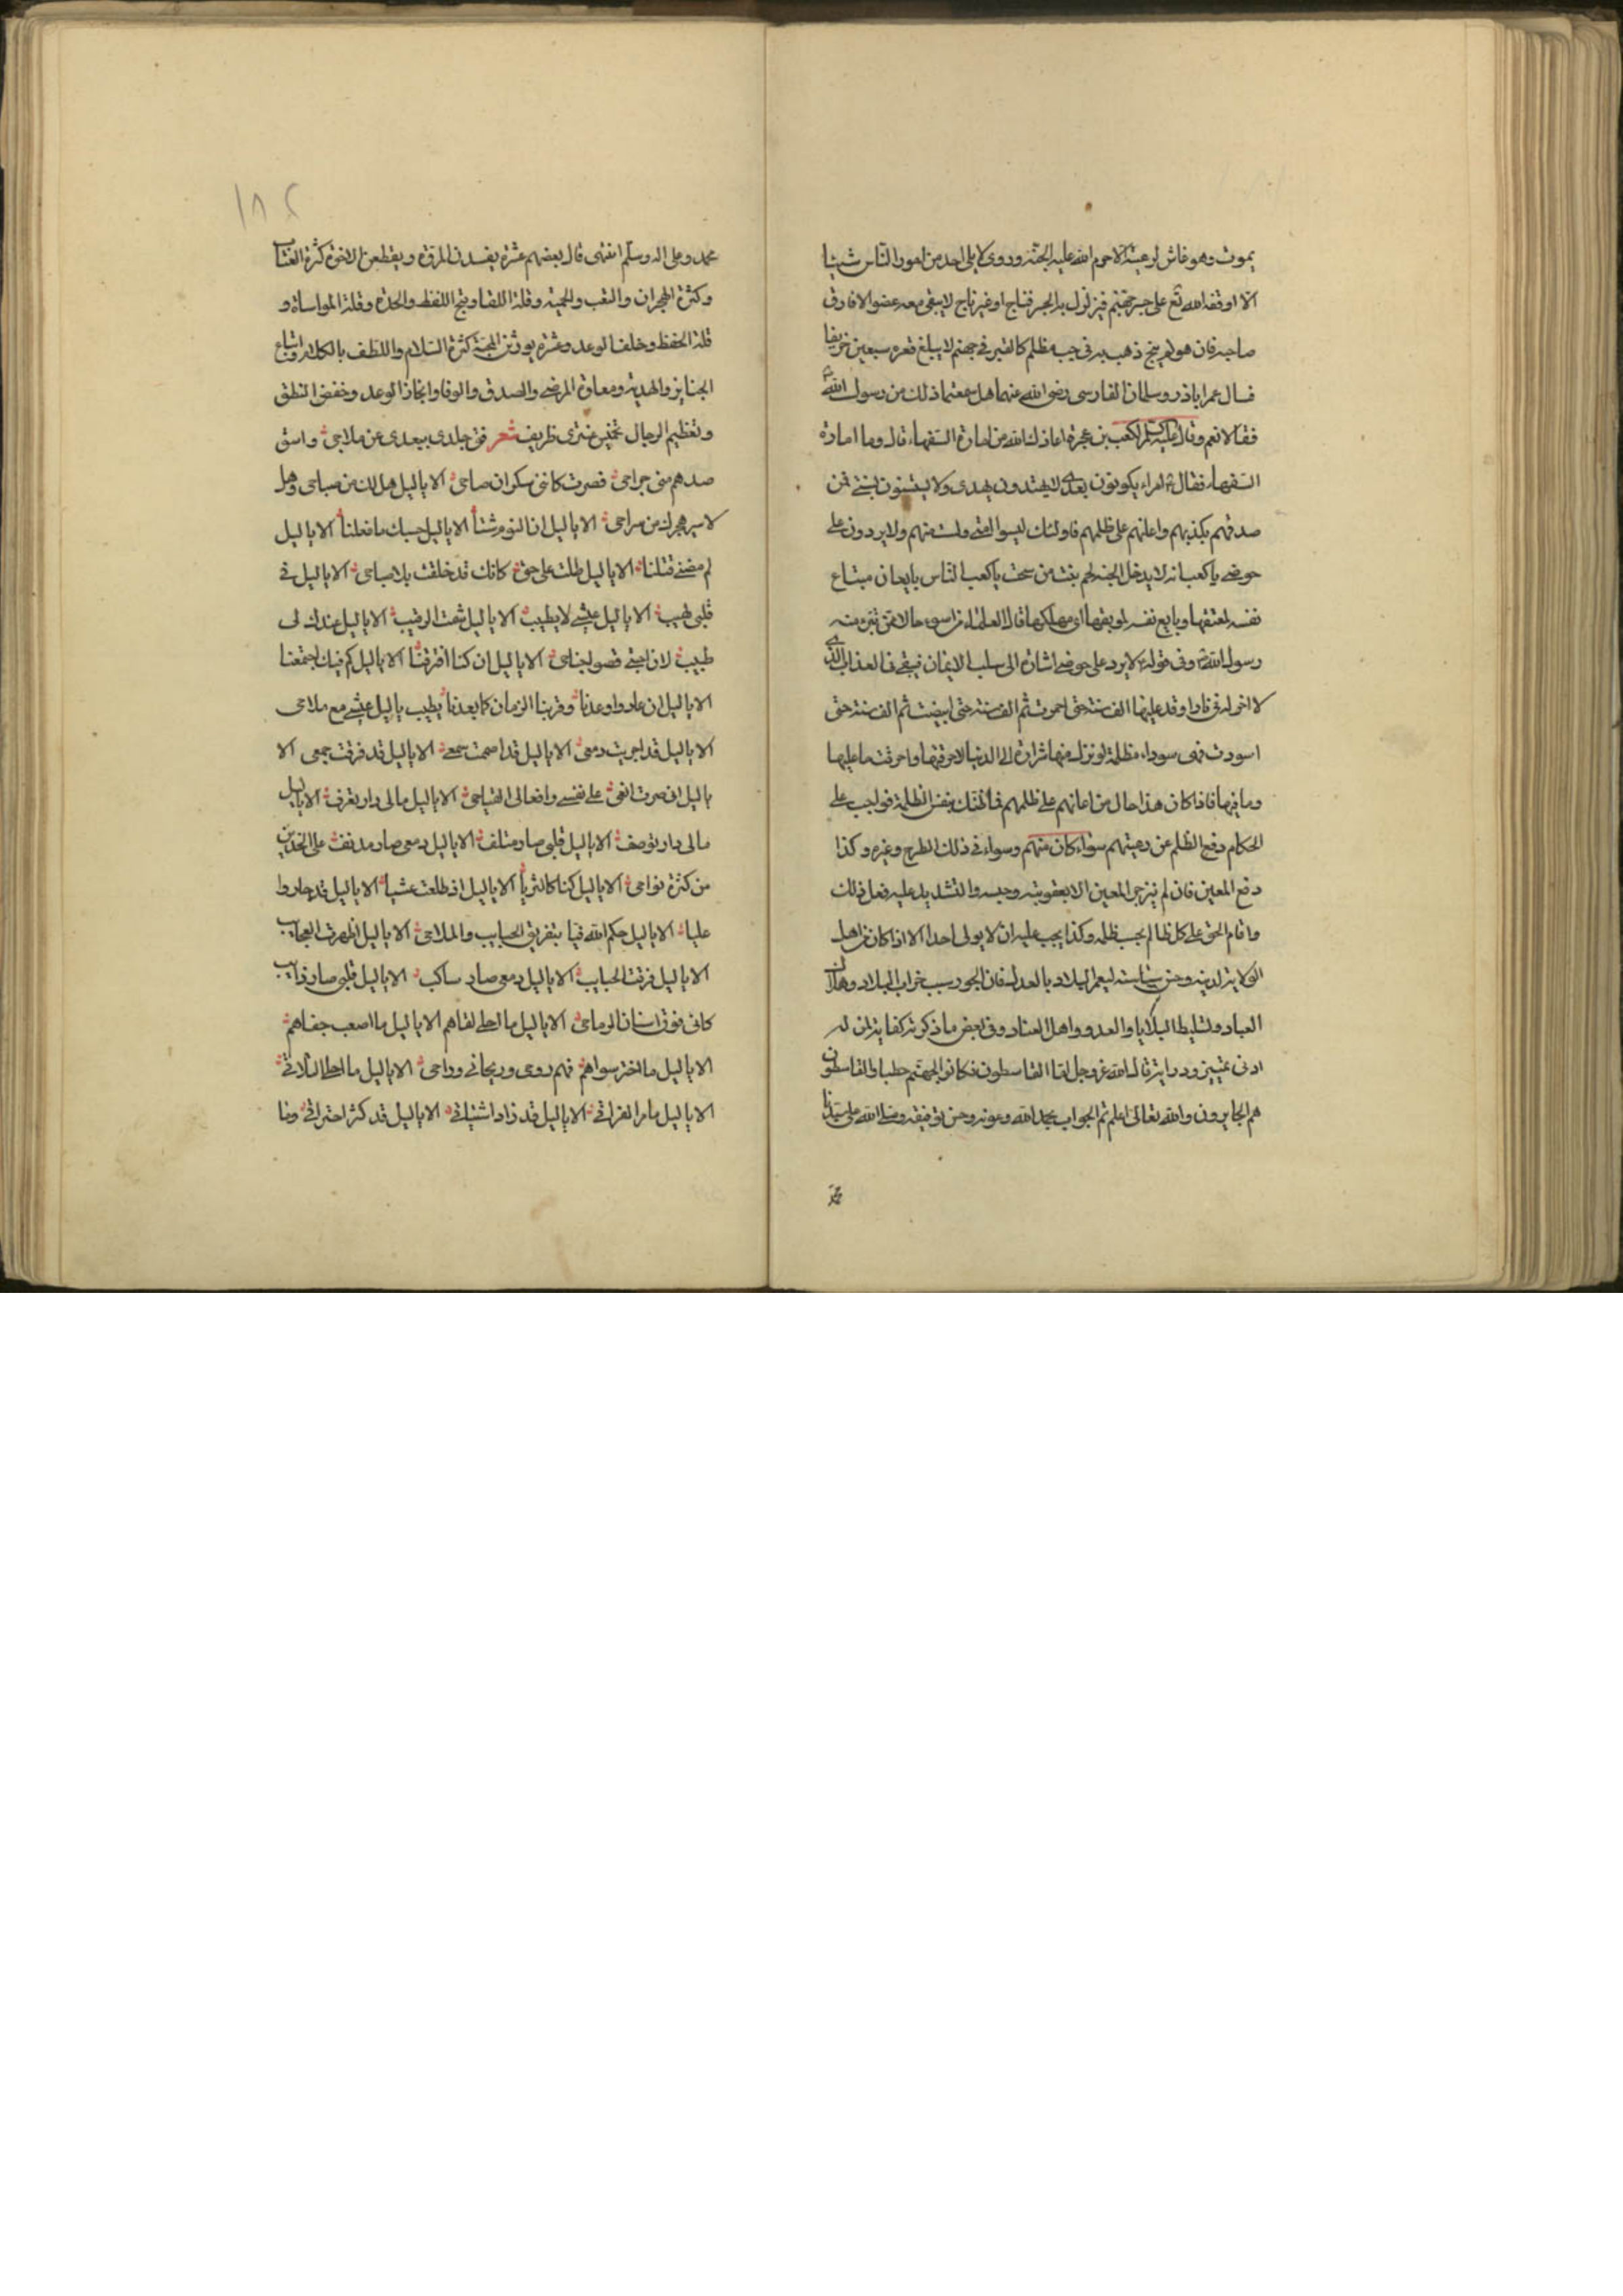 يموت وهو غاش لرعيته الا حرم الله عليه الجنة وروى لا يلى احد من امور الناس شيئا
الا اوقفه الله تع على جسر جهنم فيزلزل به الجسر فناج او غير ناج لا يبقى معه عضو الا فارق
صاحبه فان هو لم ينج ذهب به فى جب مظلم كالقبر فى جهنم لا يبلغ قعره سبعين خريفا
فسال عمر اباذر وسلمان الفارسى رضى الله عنهما هل سمعتما ذلك من رسول الله
فقالا نعم وقال لكعب بن عجرة اعاذك الله من امارة السفهاء قال وما امارة
السفهاء فقال امراء يكونون بعدى لا يهتدون بهدى ولا يستنون بسنتى فمن
صدقهم بكذبهم واعانهم على ظلمهم فاولئك ليسوا منى ولست منهم ولا يردون على
حوضى يا كعب انه لا يدخل الجنة لحم نبت من سحت يا كعب الناس بايعان مبتاع
نفسه لمعتقها وبايع نفسه لموبقها اى مهلكها قال العلماء من اسوء حالا ممن تبرء منه
رسول الله وفى قوله لا يرد على حوضى اشارة الى سلب الايمان فيبقى فى العذاب الذى
لا اخر له فى نار اوقد عليها الف سنة حتى احمرت ثم الف سنة حتى ابيضت ثم الف سنة حتى
اسودت فهى سوداء مظلمة لو نزل منها شرارة الى الدنيا لاحرقتها واحرقت ما عليها
وما فيها فاذا كان هذا حال من اعانهم على ظلمهم فما ظنك بنفس الظلمة فواجب على
الحكام دفع الظلم عن رعيتهم سواء كان منهم وسواء فى ذلك الطرح وغيره وكذا
دفع المعين فان لم ينزجر المعين الا بعقوبته وحبسه والتشديد عليه فعل ذلك
واقام الحق على كل ظالم بحسب ظلمه وكذا يجب عليه ان لا يولى احدا الا اذا كان من اهل
الولاية لدينه وحسن سياسته ليعمر البلاد بالعدل فان الجور سبب خراب البلاد وهلاك
العباد وتسليط البلايا والعدو واهل العناد وفى بعض ما ذكرته كفاية لمن له
ادنى تمييز ودراية قال الله عز وجل اما القاسطون فكانوا لجهنم حطبا والقاسطون
هم الجايرون والله تعالى اعلم تم الجواب بحمد الله وعونه وحسن توفيقه وصلى الله على سيدنا
محمد
١٨٢
محمد وعلى اله وسلم انتهى قال بعضهم عشرة يفسدن المروة ويقطعن الاخوة كثرة العتاب
وكثرة الهجران والتعب والحمية وقلة اللقا وقبح اللفظ والحدة وقلة المواساة و
قلة الحفظ وخلف الوعد وعشرة يورثن المحبة كثرة السلام واللطف بالكلام واتباع
الجنايز والهدية ومعاودة المرضى والصدق والوفا وانجاز الوعد وخفض النطق
وتعظيم الرجال تخميس عنترى ظريف شعر فنى جلدى ببعدى عن ملاحى واسقى
صدهم منى جراحى فصرت كاننى سكران صاحى الا يا ليل هل لك من صباحى وهل
لاسير هجرك من سراحى الا يا ليل انا لنوم شتنا الا يا ليل حسبك ما فعلنا الا يا ليل
لم ترضى قتلنا الا يا ليل طلت على حتى كانك قد خلقت بلا صباحى الا يا ليل فى
قلبى لهيب الا يا ليل عيشى لا يطيب الا يا ليل شمت الرقيب الا يا ليل عندك لى
طبيب لان اجنى قصوا جناحى الا يا ليل ان كنا افترقنا الا يا ليل كم فيك اجتمعنا
الا يا ليل ان عادوا وعدنا وقربنا الزمان كما بعدنا يطيب يا ليل عيشى مع ملاحى
الا يا ليل قد اجريت دمعى الا يا ليل قد اصمت سمعى الا يا ليل قد فرقت جمعى الا
يا ليل ان صرت انعى على نفسى وافعالى القباحى الا يا ليل مالى دار تعرف الا يا ليل
مالى دار توصف الا يا ليل قلبى صار متلف الا يا ليل دمعى صار مذنف على الخدين
من كثرة نواحى الا يا ليل كنا كالثريا الا يا ليل اذ طلعت عشيا الا يا ليل قد جاروا
عليا الا يا ليل حكم الله فينا بتفريق الحبايب والملاحى الا يا ليل اظهرت العجايب
الا يا ليل فرقت الحبايب الا يا ليل دمعى صار ساكب الا يا ليل قلبى صار ذايب
كانى فوق اسنان الرماحى الا يا ليل ما احلى لقاهم الا يا ليل ما اصعب جفاهم
الا يا ليل ما اختر سواهم فهم روحى وريحانى وراحى الا يا ليل ما احلى التلاقى
الا يا ليل ما مر الفراق الا يا ليل قد زاد اشتياقى الا يا ليل قد كثر احتراقى وما